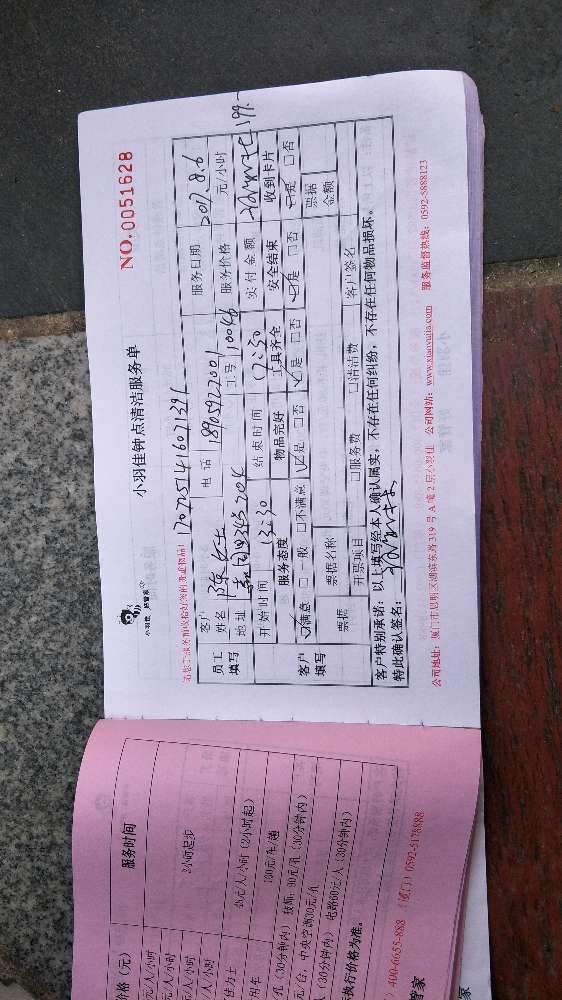 小羽佳钟点清洁服务单
NO.0051628
小羽佳 好管家
1707251416071391
员工填写
客户姓名 陈女士 电话 18905922001 服务日期 2017.8.6
地址 204 工号 10046 服务价格 元/小时
开始时间 13:30 结束时间 17:30 实付金额 199.-
客户填写
服务态度 物品完好 工具齐全 安全结束 收到卡片
☑满意 □一般 □不满意 ☑是 □否 ☑是 □否 ☑是 □否 ☑是 □否
票据 票据名称 票据金额
开票项目 □服务费 □清洁费 客户签名
客户特别承诺:以上填写经本人确认属实,不存在任何纠纷,不存在任何物品损坏。
特此确认签名:
公司地址:厦门市思明区湖滨东路319号A项2层小羽佳 公司网站:www.xiaoyujia.com 服务监督热线:0592-5888123
价格(元) 服务时间
元/人/小时 2小时起步
元/人/小时
元/人/小时
人/小时
40元/人/小时(2小时起)
100元/车/趟
孔(30分钟内) 玻璃:30元/孔(30分钟内)
元/台,中央空调30元/孔
人(30分钟内) 电路60元/人(30分钟内)
执行价格为准。
400-6655-888 (厦门)0592-5178888
管家